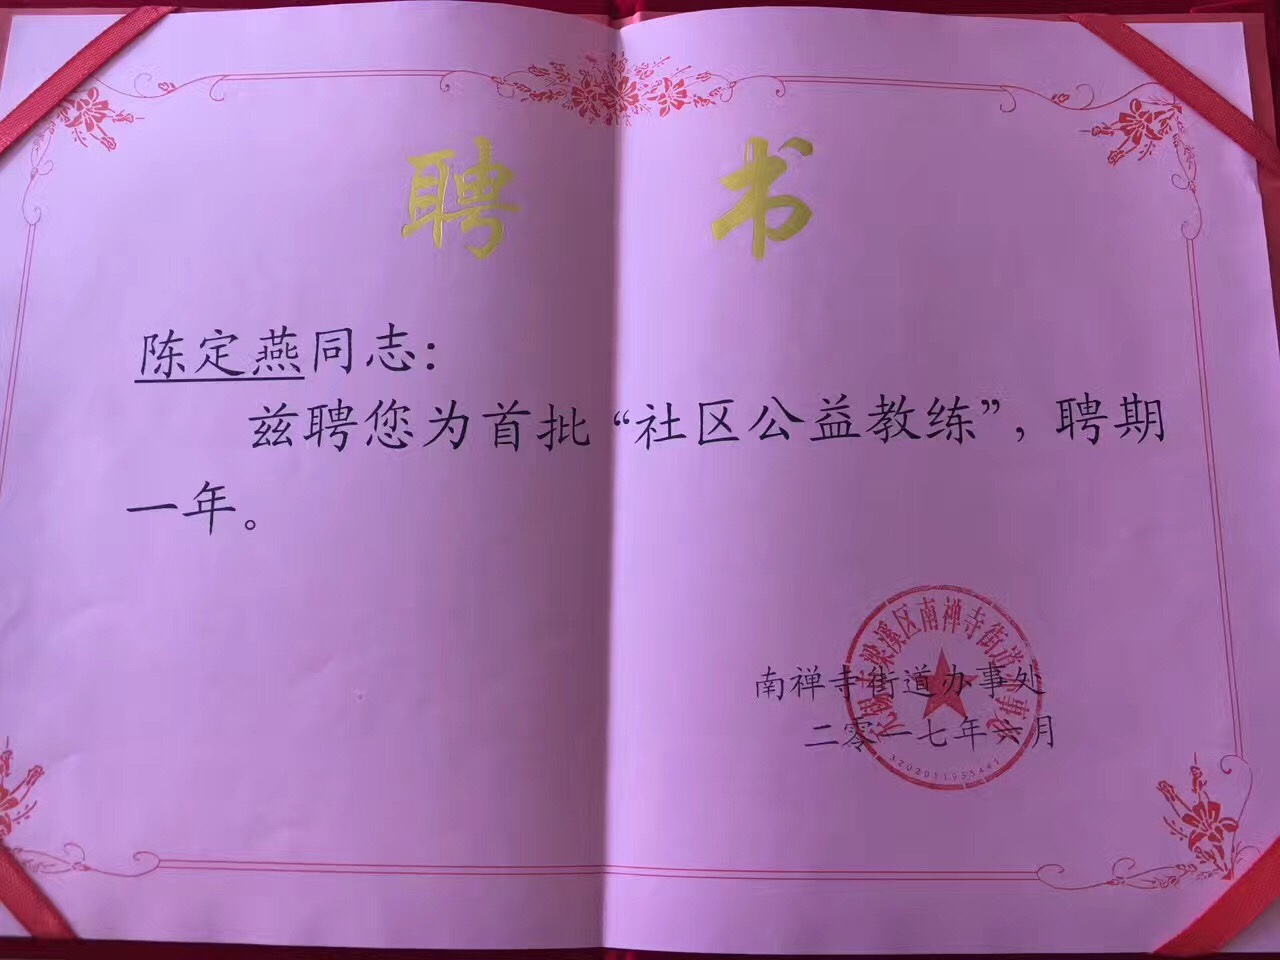 聘书
陈定燕同志：
兹聘您为首批“社区公益教练”，聘期
一年。
南禅寺街道办事处
二零一七年六月
无锡市梁溪区南禅寺街道办事处